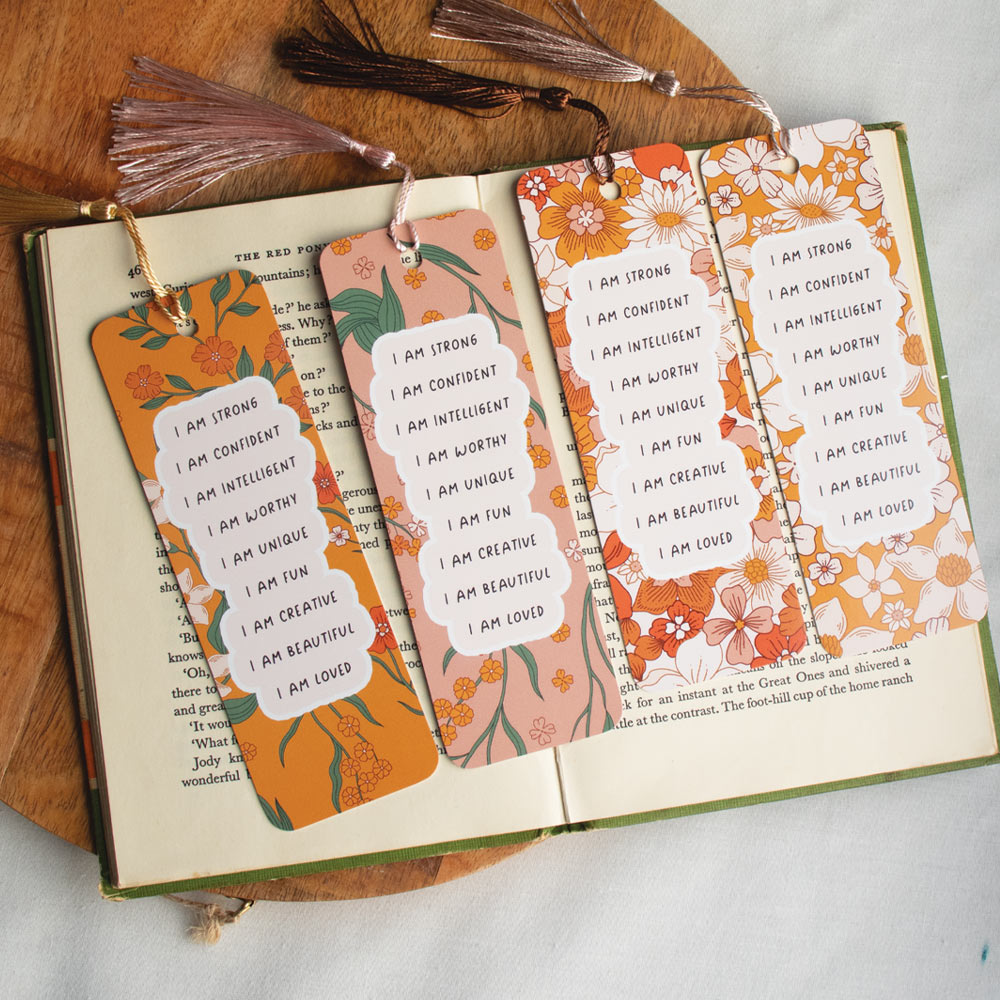 THE RED
46
he asked
Why?
them?'
and
knows
'Oh,
there to
and
'It
'What
Jody
wonderful
I AM STRONG
I AM CONFIDENT
I AM INTELLIGENT
I AM WORTHY
I AM UNIQUE
I AM FUN
I AM CREATIVE
I AM BEAUTIFUL
I AM LOVED
I AM STRONG
I AM CONFIDENT
I AM INTELLIGENT
I AM WORTHY
I AM UNIQUE
I AM FUN
I AM CREATIVE
I AM BEAUTIFUL
I AM LOVED
I AM STRONG
I AM CONFIDENT
I AM INTELLIGENT
I AM WORTHY
I AM UNIQUE
I AM FUN
I AM CREATIVE
I AM BEAUTIFUL
I AM LOVED
I AM STRONG
I AM CONFIDENT
I AM INTELLIGENT
I AM WORTHY
I AM UNIQUE
I AM FUN
I AM CREATIVE
I AM BEAUTIFUL
I AM LOVED
on the looked
for an instant at the Great Ones and shivered a
at the contrast. The foot-hill cup of the home ranch